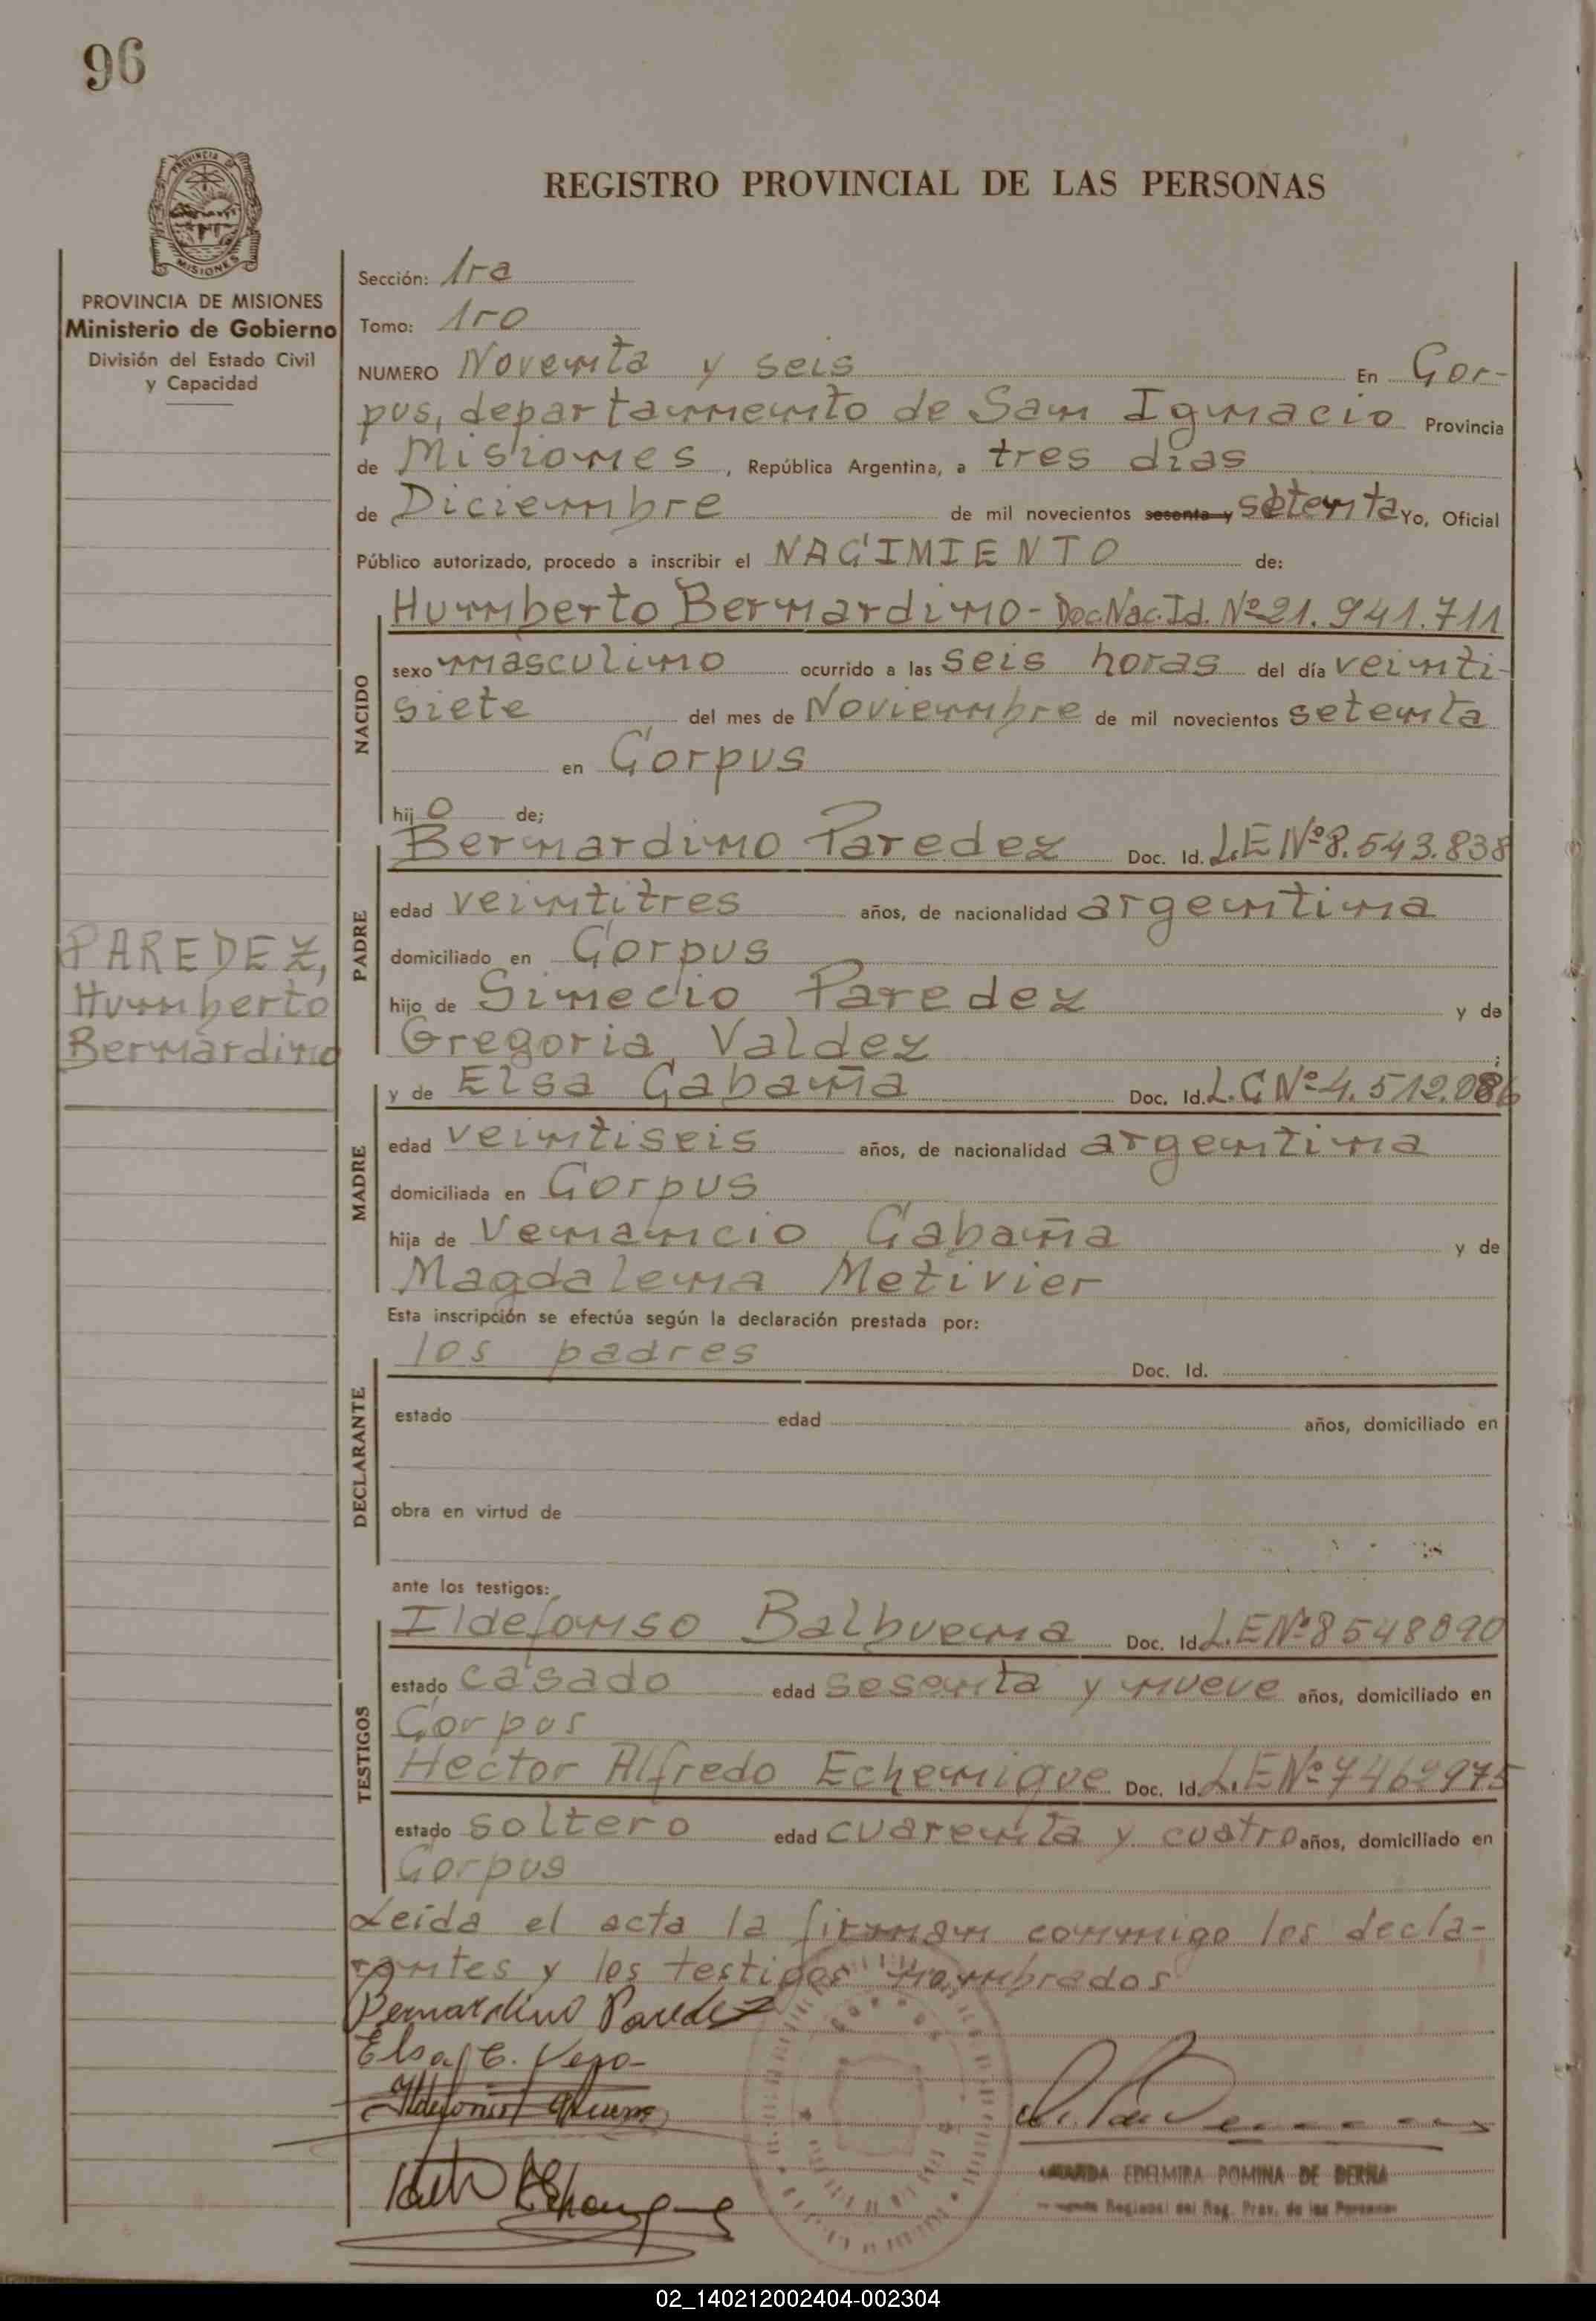 96
PROVINCIA DE
MISIONES
REGISTRO PROVINCIAL DE LAS PERSONAS
PROVINCIA DE MISIONES
Ministerio de Gobierno
División del Estado Civil
y Capacidad
Sección: 1ra
Tomo: 1ro
NUMERO Noventa y seis En Cor-
pus, departamento de San Ignacio Provincia
de Misiones, República Argentina, a tres días
de Diciembre de mil novecientos sesenta y setenta Yo, Oficial
Público autorizado, procedo a inscribir el NACIMIENTO de:
NACIDO
Humberto Bernardino - Doc.Nac.Id. Nº 21.941.711
sexo masculino ocurrido a las seis horas del día veinti-
siete del mes de Noviembre de mil novecientos setenta
en Corpus
hijo de;
PADRE
Bernardino Paredez Doc. Id. L.E Nº 8.543.838
edad veintitres años, de nacionalidad argentina
domiciliado en Corpus
hijo de Sinecio Paredez y de
Gregoria Valdez;
PAREDEZ,
Humberto
Bernardino
MADRE
y de Elsa Cabaña Doc. Id. L.C Nº 4.512.086
edad veintiseis años, de nacionalidad argentina
domiciliada en Corpus
hija de Venancio Cabaña y de
Magdalena Metivier
Esta inscripción se efectúa según la declaración prestada por:
DECLARANTE
los padres Doc. Id.
estado edad años, domiciliado en
obra en virtud de
ante los testigos:
TESTIGOS
Ildefonso Balbuena Doc. Id. L.E Nº 8548890
estado casado edad sesenta y nueve años, domiciliado en
Corpus
Hector Alfredo Echenique Doc. Id. L.E Nº 7462975
estado soltero edad cuarenta y cuatro años, domiciliado en
Corpus
Leída el acta la firman conmigo los decla-
rantes y los testigos nombrados
Bernardino Paredez
Elsa C.
EDELMIRA POMINA DE BERNA
Regional del Reg. Prov. de las Personas
02_140212002404-002304